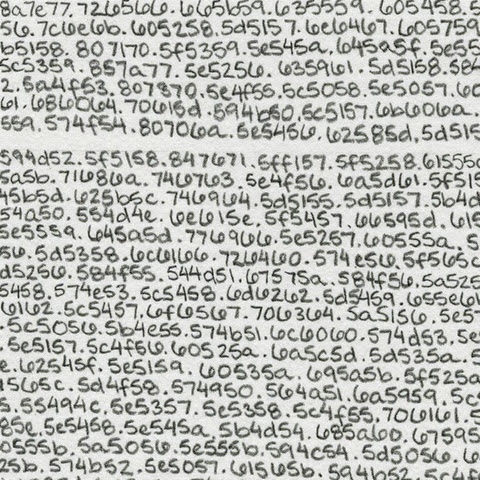 8a7e77.726566.665b59.635559.605458.5
56.7c6e6b.605258.5d5157.6e6467.605759
b5158.807170.5f5359.5e545a.645a5f.5e55
5c5359.857a77.5e5256.635961.5d5158.584
2.5a4f53.807370.5e4f55.5c5058.5e5057.60
61.686064.70615d.594b50.5c5157.6b606a.
559.574f54.80706a.5e5456.62585d.5d515
594d52.5f5158.847671.5ff157.5f5258.61555
5a5b.71686a.746763.5e4f56.6a5d61.5f515
45b5d.625b5c.746964.5d5155.5d5157.5b4d
54a50.554d4e.6e615e.5f5457.66595d.615
5e5559.645a5d.776966.5e5257.60555a.5
56.5d5358.6c6166.726460.574e56.5f565c
d5256.584f55.544d51.67575a.584f56.5a525
5458.574e53.5c5458.6d6262.5d5459.655e61
6162.5c5457.6f6567.706364.5a5156.5e5
.5c5056.5b4e55.574b51.6c6060.574d53.5e
.5e5157.5c4f56.60525a.6a5c5d.5d535a.5
e.62545f.5e5159.60535a.695a5b.5f525a
1565c.5d4f58.574950.564a51.6a5959.5c
5.55494c.5e5357.5e5358.5c4f55.706161.5
85e.5e5458.5e545a.5b4d54.685a60.67595
0555b.5a5056.5e555b.594c54.5d5056.6
25b.574b52.5e5057.61565b.594b52.5c4f